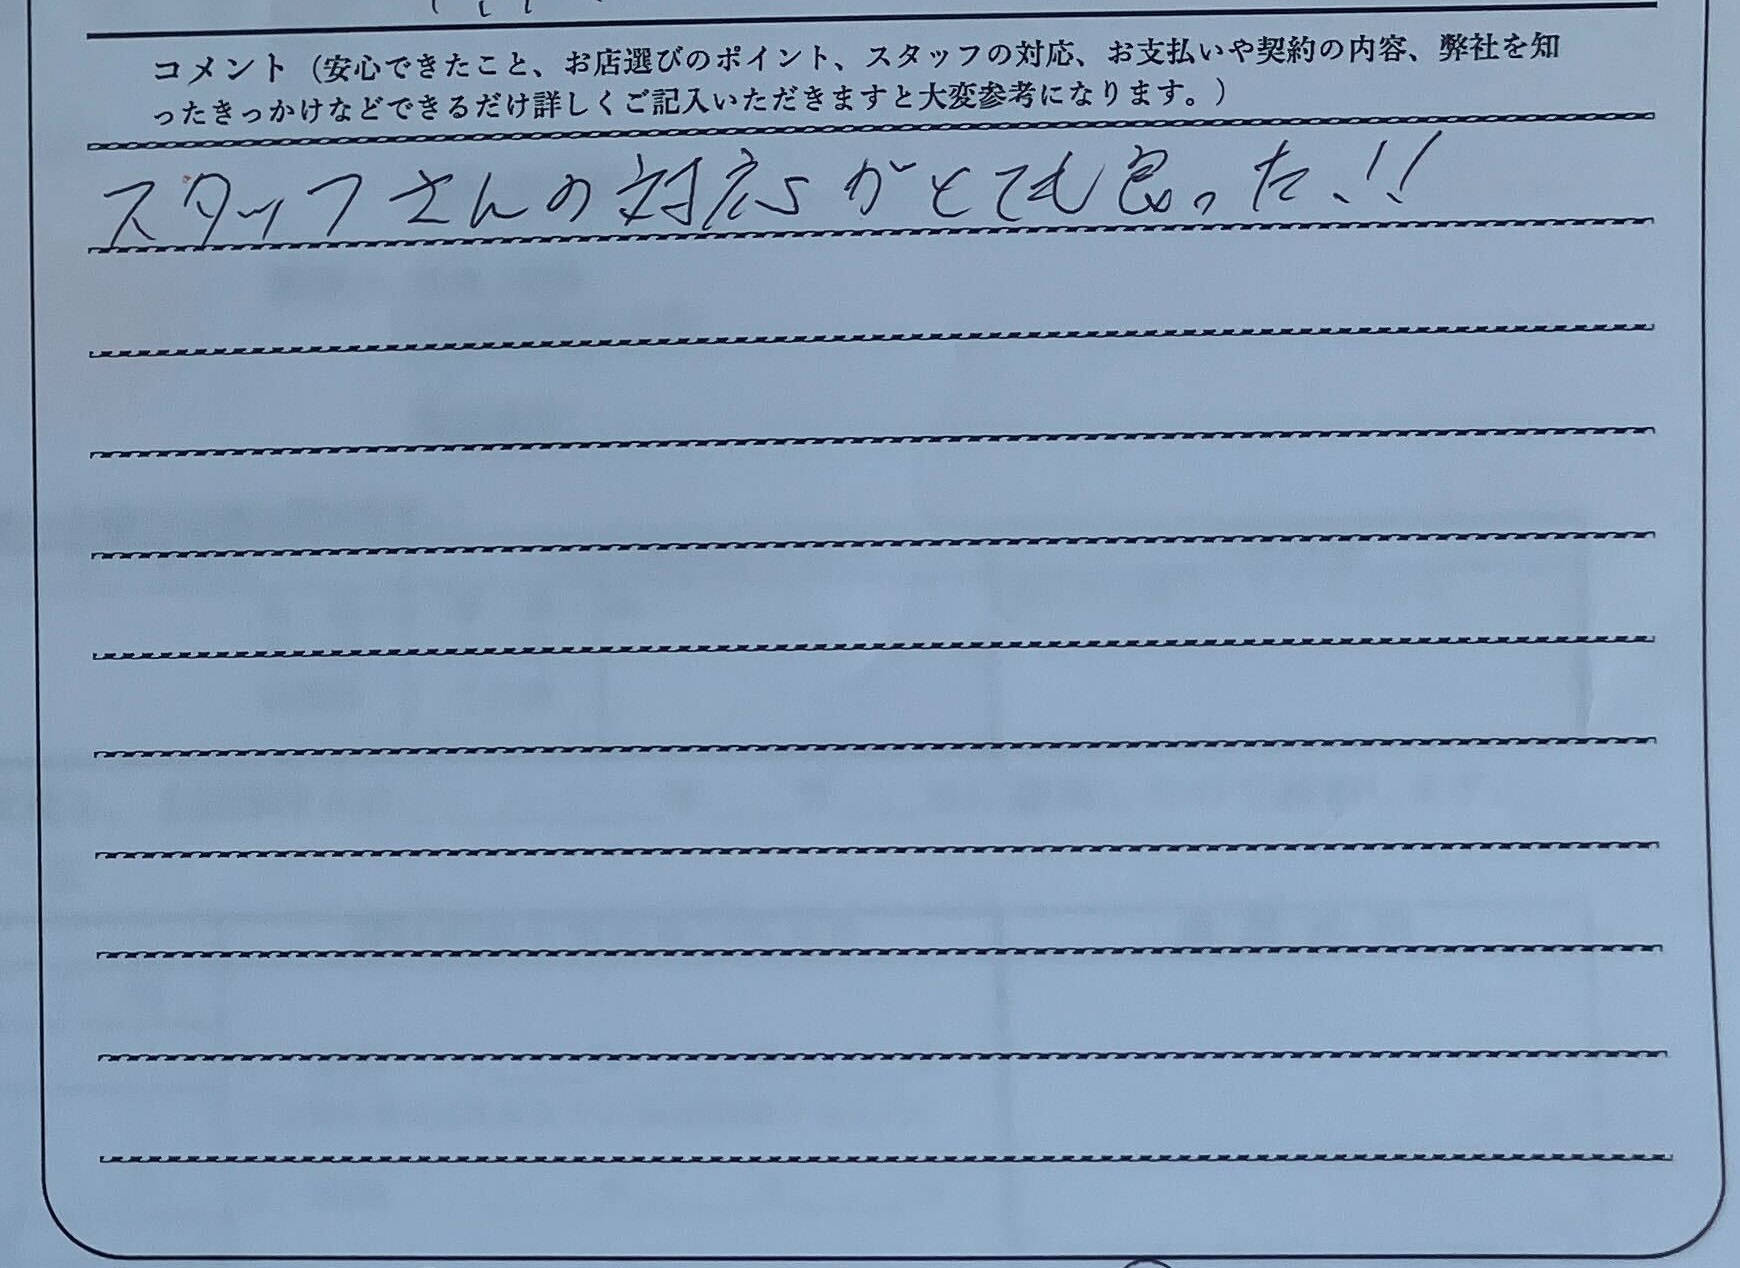 コメント（安心できたこと、お店選びのポイント、スタッフの対応、お支払いや契約の内容、弊社を知
ったきっかけなどできるだけ詳しくご記入いただきますと大変参考になります。）
スタッフさんの対応がとても良った!!